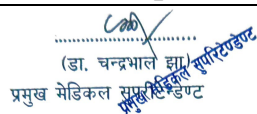 (डा. चन्द्रभाल झा)
प्रमुख मेडिकल सुपरिटेण्डेण्ट
प्रमुख मेडिकल सुपरिटेण्डेण्ट